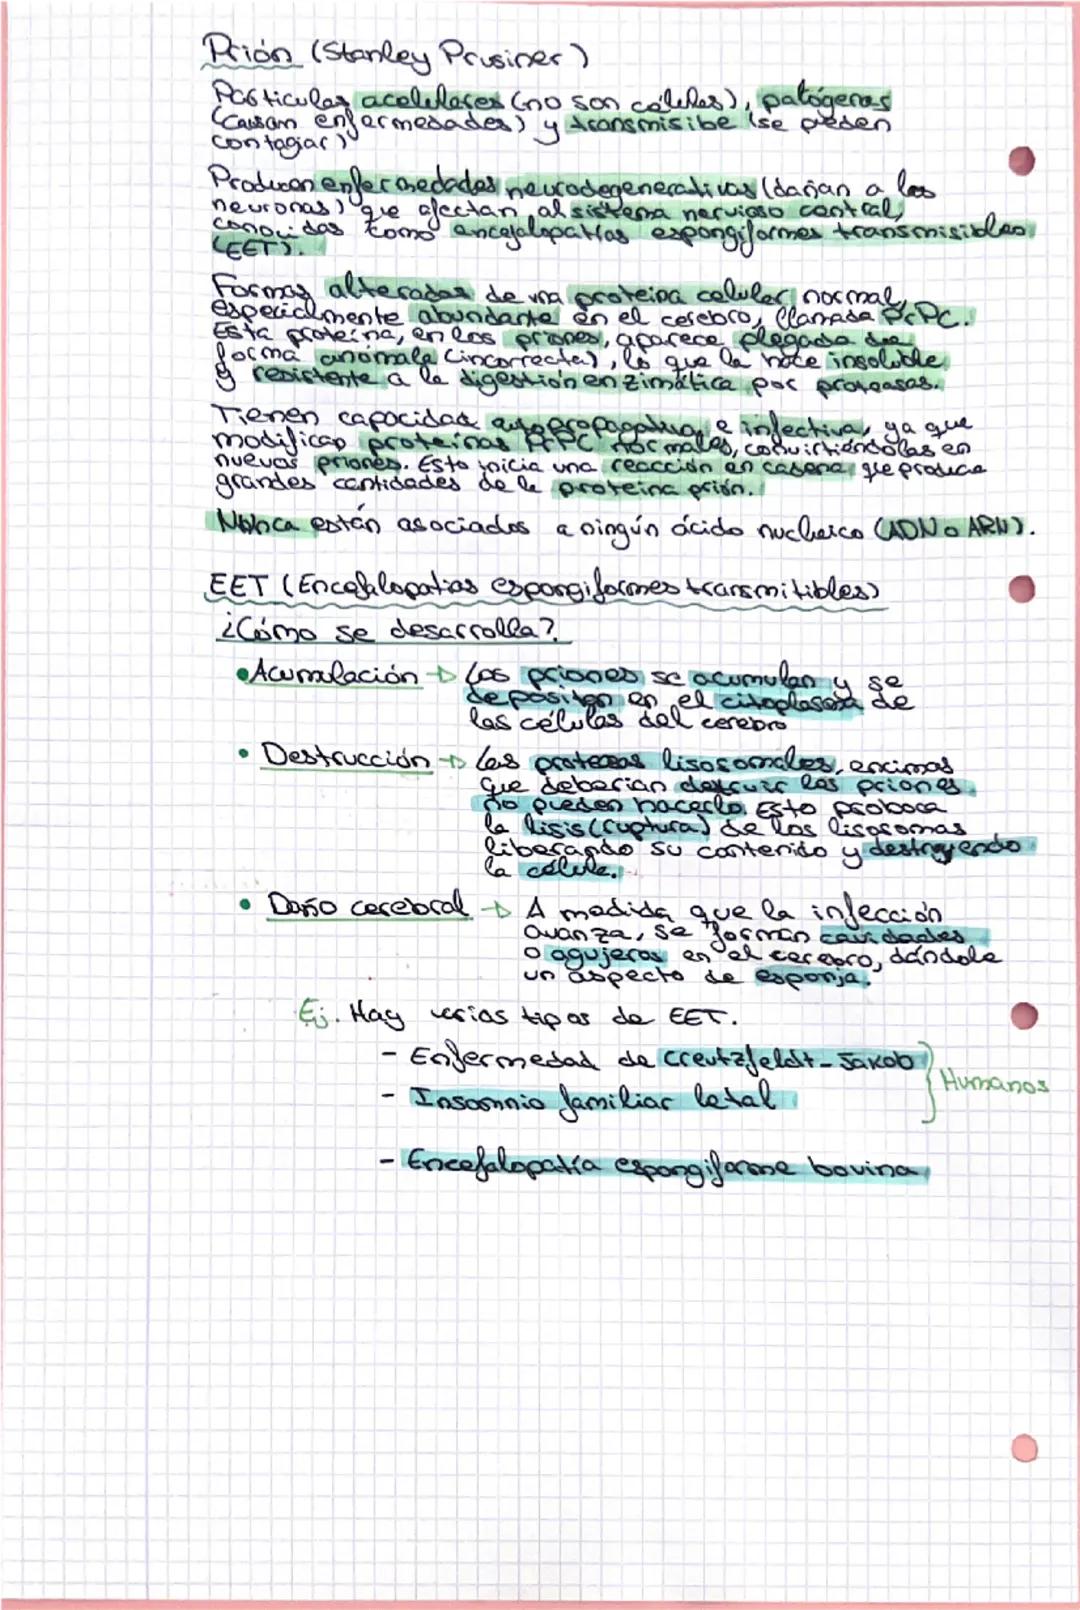 Prión (Stanley Prusiner)
Partículas acelulares (no son células), patógenas
(causan enfermedades) y transmisibe (se pueden
contagiar)
Producen enfermedades neurodegenerativas (dañan a las
neuronas) que afectan al sistema nervioso central,
conocidas como encefalopatías espongiformes transmisibles
(EET).
Formas alteradas de una proteína celular normal,
especialmente abundante en el cerebro, llamada PrPC.
Esta proteína, en los priones, aparece plegada de
forma anómala (incorrecta), lo que la hace insoluble
y resistente a la digestión enzimática por proteasas.
Tienen capacidad autopropagativa e infectiva, ya que
modifican proteínas PrPC normales, convirtiéndolas en
nuevos priones. Esto inicia una reacción en cadena que produce
grandes cantidades de la proteína prión.
Nunca están asociados a ningún ácido nucleico (ADN o ARN).
EET (Encefalopatías espongiformes transmitibles)
¿Cómo se desarrolla?
• Acumulación → Los priones se acumulan y se
depositan en el citoplasma de
las células del cerebro
• Destrucción → Las proteasas lisosomales, enzimas
que deberían destruir los priones
no pueden hacerlo. Esto proboca
la lisis (ruptura) de los lisosomas
liberando su contenido y destruyendo
la célula.
• Daño cerebral → A medida que la infección
avanza, se forman cavidades
o agujeros en el cerebro, dándole
un aspecto de esponja.
Ej. Hay varios tipos de EET.
- Enfermedad de Creutzfeldt-Jakob
Humanos
- Insomnio familiar letal
- Encefalopatía espongiforme bovina